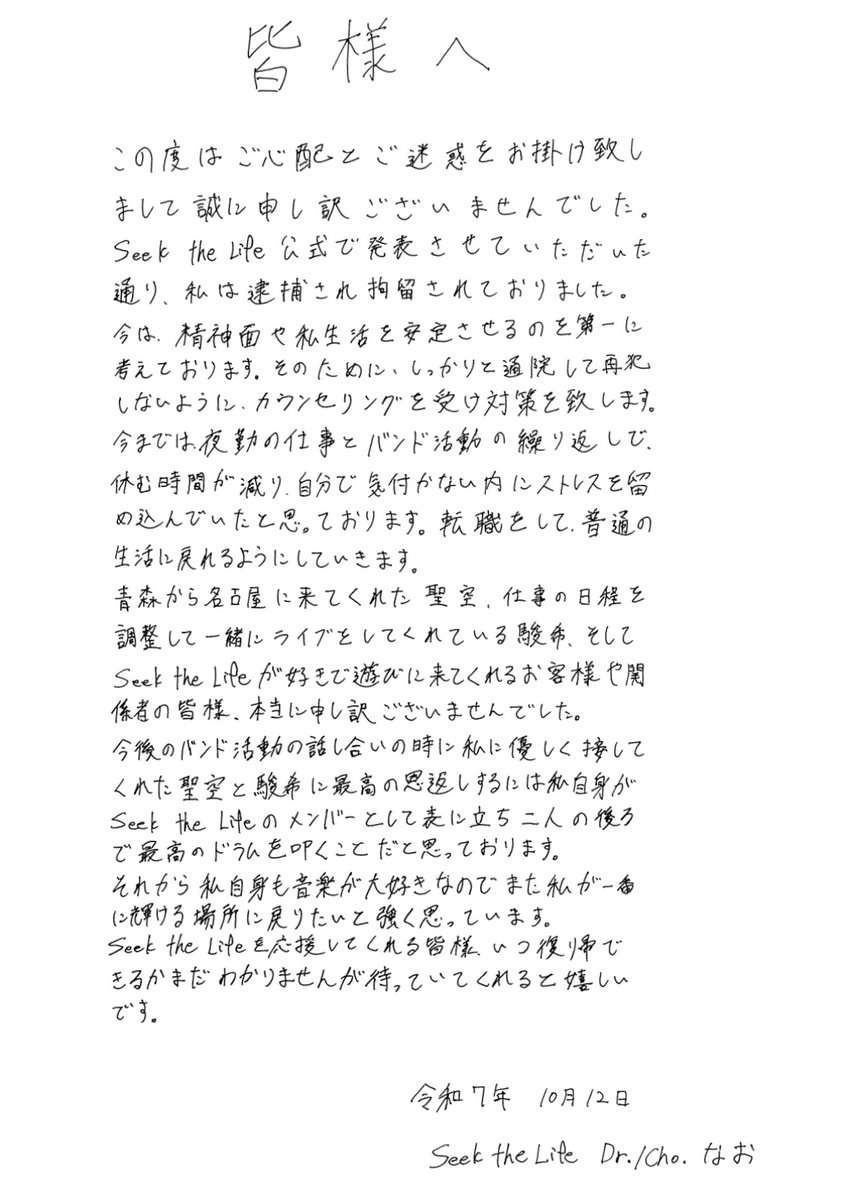 皆様へ
この度はご心配とご迷惑をお掛け致し
まして誠に申し訳ございませんでした。
Seek the Life 公式で発表させていただいた
通り、私は逮捕され拘留されておりました。
今は、精神面や私生活を安定させるのを第一に
考えております。そのために、しっかりと通院して再犯
しないように、カウンセリングを受け対策を致します。
今までは、夜勤の仕事とバンド活動の繰り返しで、
休む時間が減り、自分で気付かない内にストレスを留
め込んでいたと思っております。転職をして、普通の
生活に戻れるようにしていきます。
青森から名古屋に来てくれた聖空、仕事の日程を
調整して一緒にライブをしてくれている駿希、そして
Seek the Lifeが好きで遊びに来てくれるお客様や関
係者の皆様、本当に申し訳ございませんでした。
今後のバンド活動の話し合いの時に私に優しく接して
くれた聖空と駿希に最高の恩返しするには私自身が
Seek the Lifeのメンバーとして表に立ち二人の後ろ
で最高のドラムを叩くことだと思っております。
それから私自身も音楽が大好きなのでまた私が一番
に輝ける場所に戻りたいと強く思っています。
Seek the Lifeを応援してくれる皆様、いつ復帰で
きるかまだわかりませんが待っていてくれると嬉しい
です。
令和7年 10月12日
Seek the Life Dr./Cho. なお